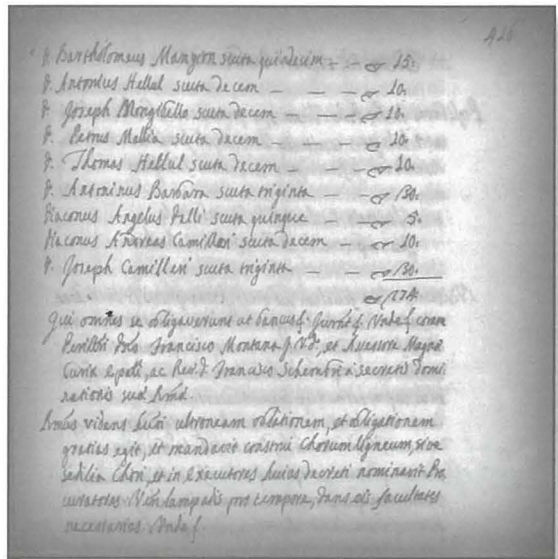 426
D. Bartholomeus Mamyron scuta quindecim — — 15.
D. Antonius Hellul scuta decem — — — 10.
D. Joseph Mongibello scuta decem — — — 10.
D. Petrus Mellia scuta decem — — — 10.
D. Thomas Hellul scuta decem — — — 10.
D. Antoninus Barbara scuta triginta — — 30.
Diaconus Angelus scuta quinque — — 5.
Diaconus Andreas Camilleri scuta decem — — 10.
D. Joseph Camilleri scuta triginta — — 30.
174
Qui omnes se obligaverunt ut Unde f. coram
Dno Francisco Montana J.V.D., et Assessore Magnæ
Curiæ ac Rev. D. Francisco Schembri à secretis Domi
nationis suæ Rmæ.
Rmus videns ultroneam oblationem, et obligationem
gratias egit, et mandavit construi Chorum ligneum, sive
sedilia Chori, et in executores huius decreti nominavit Pro
curatores Ven. lampadis pro tempore, dans eis facultates
necessarias Unde f.